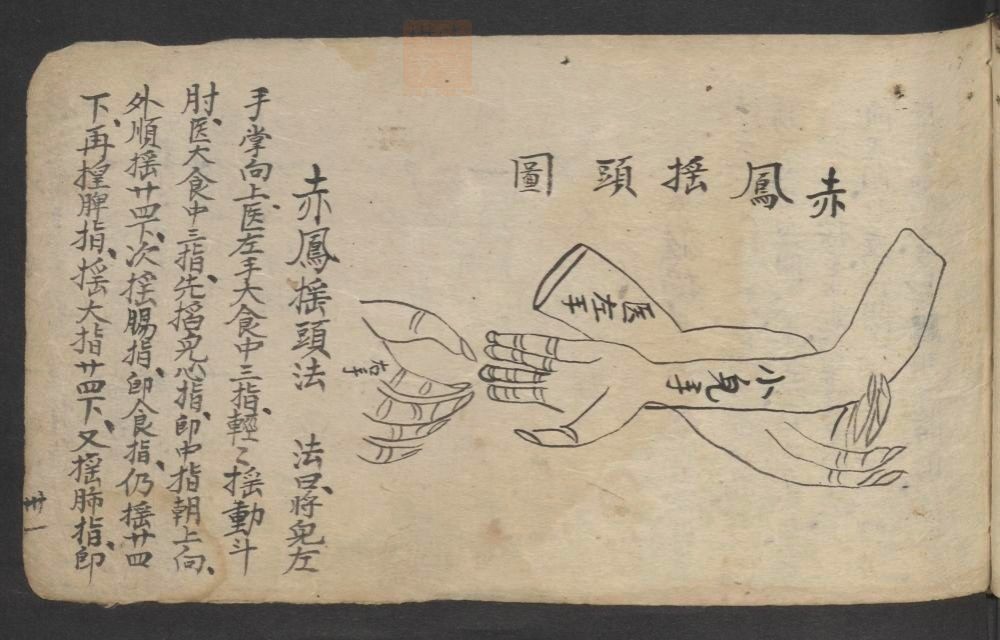 赤鳳揺頭圖
医左手
小兒手
右手
赤鳳揺頭法　法曰、将兒左
手掌向上、医左手大食中三指、輕〻揺動斗
肘、医大食中三指、先掐兒心指、卽中指朝上向、
外順揺廿四下、次揺腸指、卽食指、仍揺廿四
下、再揑脾指、揺大指廿四下、又揺肺指、卽
卅一